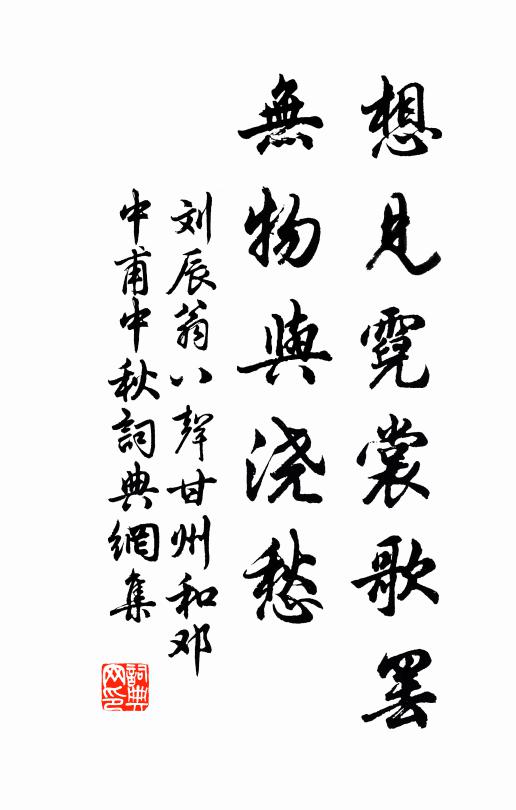 想見霓裳歌罷
無物與浇愁
刘辰翁八聲甘州和邓
中甫中秋詞典網集
詞典网印